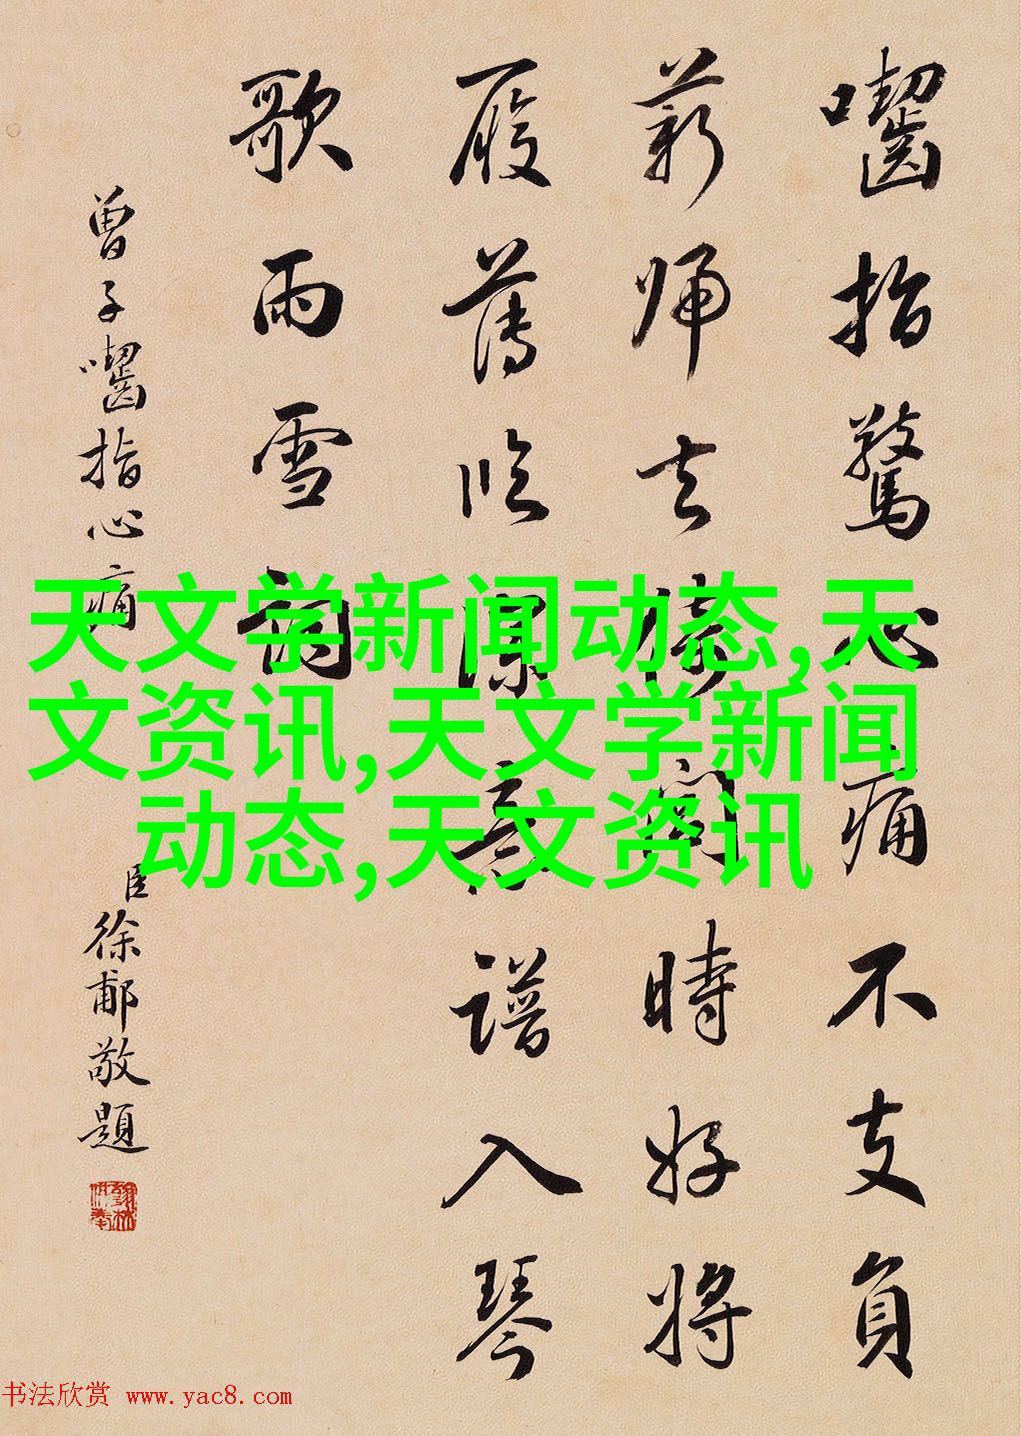 囓指驚心痛不支負
薪歸去倚閭時好將
履薄臨深意譜入琴
歌雨雪詞
曾子囓指心痛
臣徐郙敬題
天文学新闻动态,天
文资讯,天文学新闻
动态,天文资讯
书法欣赏 www.yac8.com